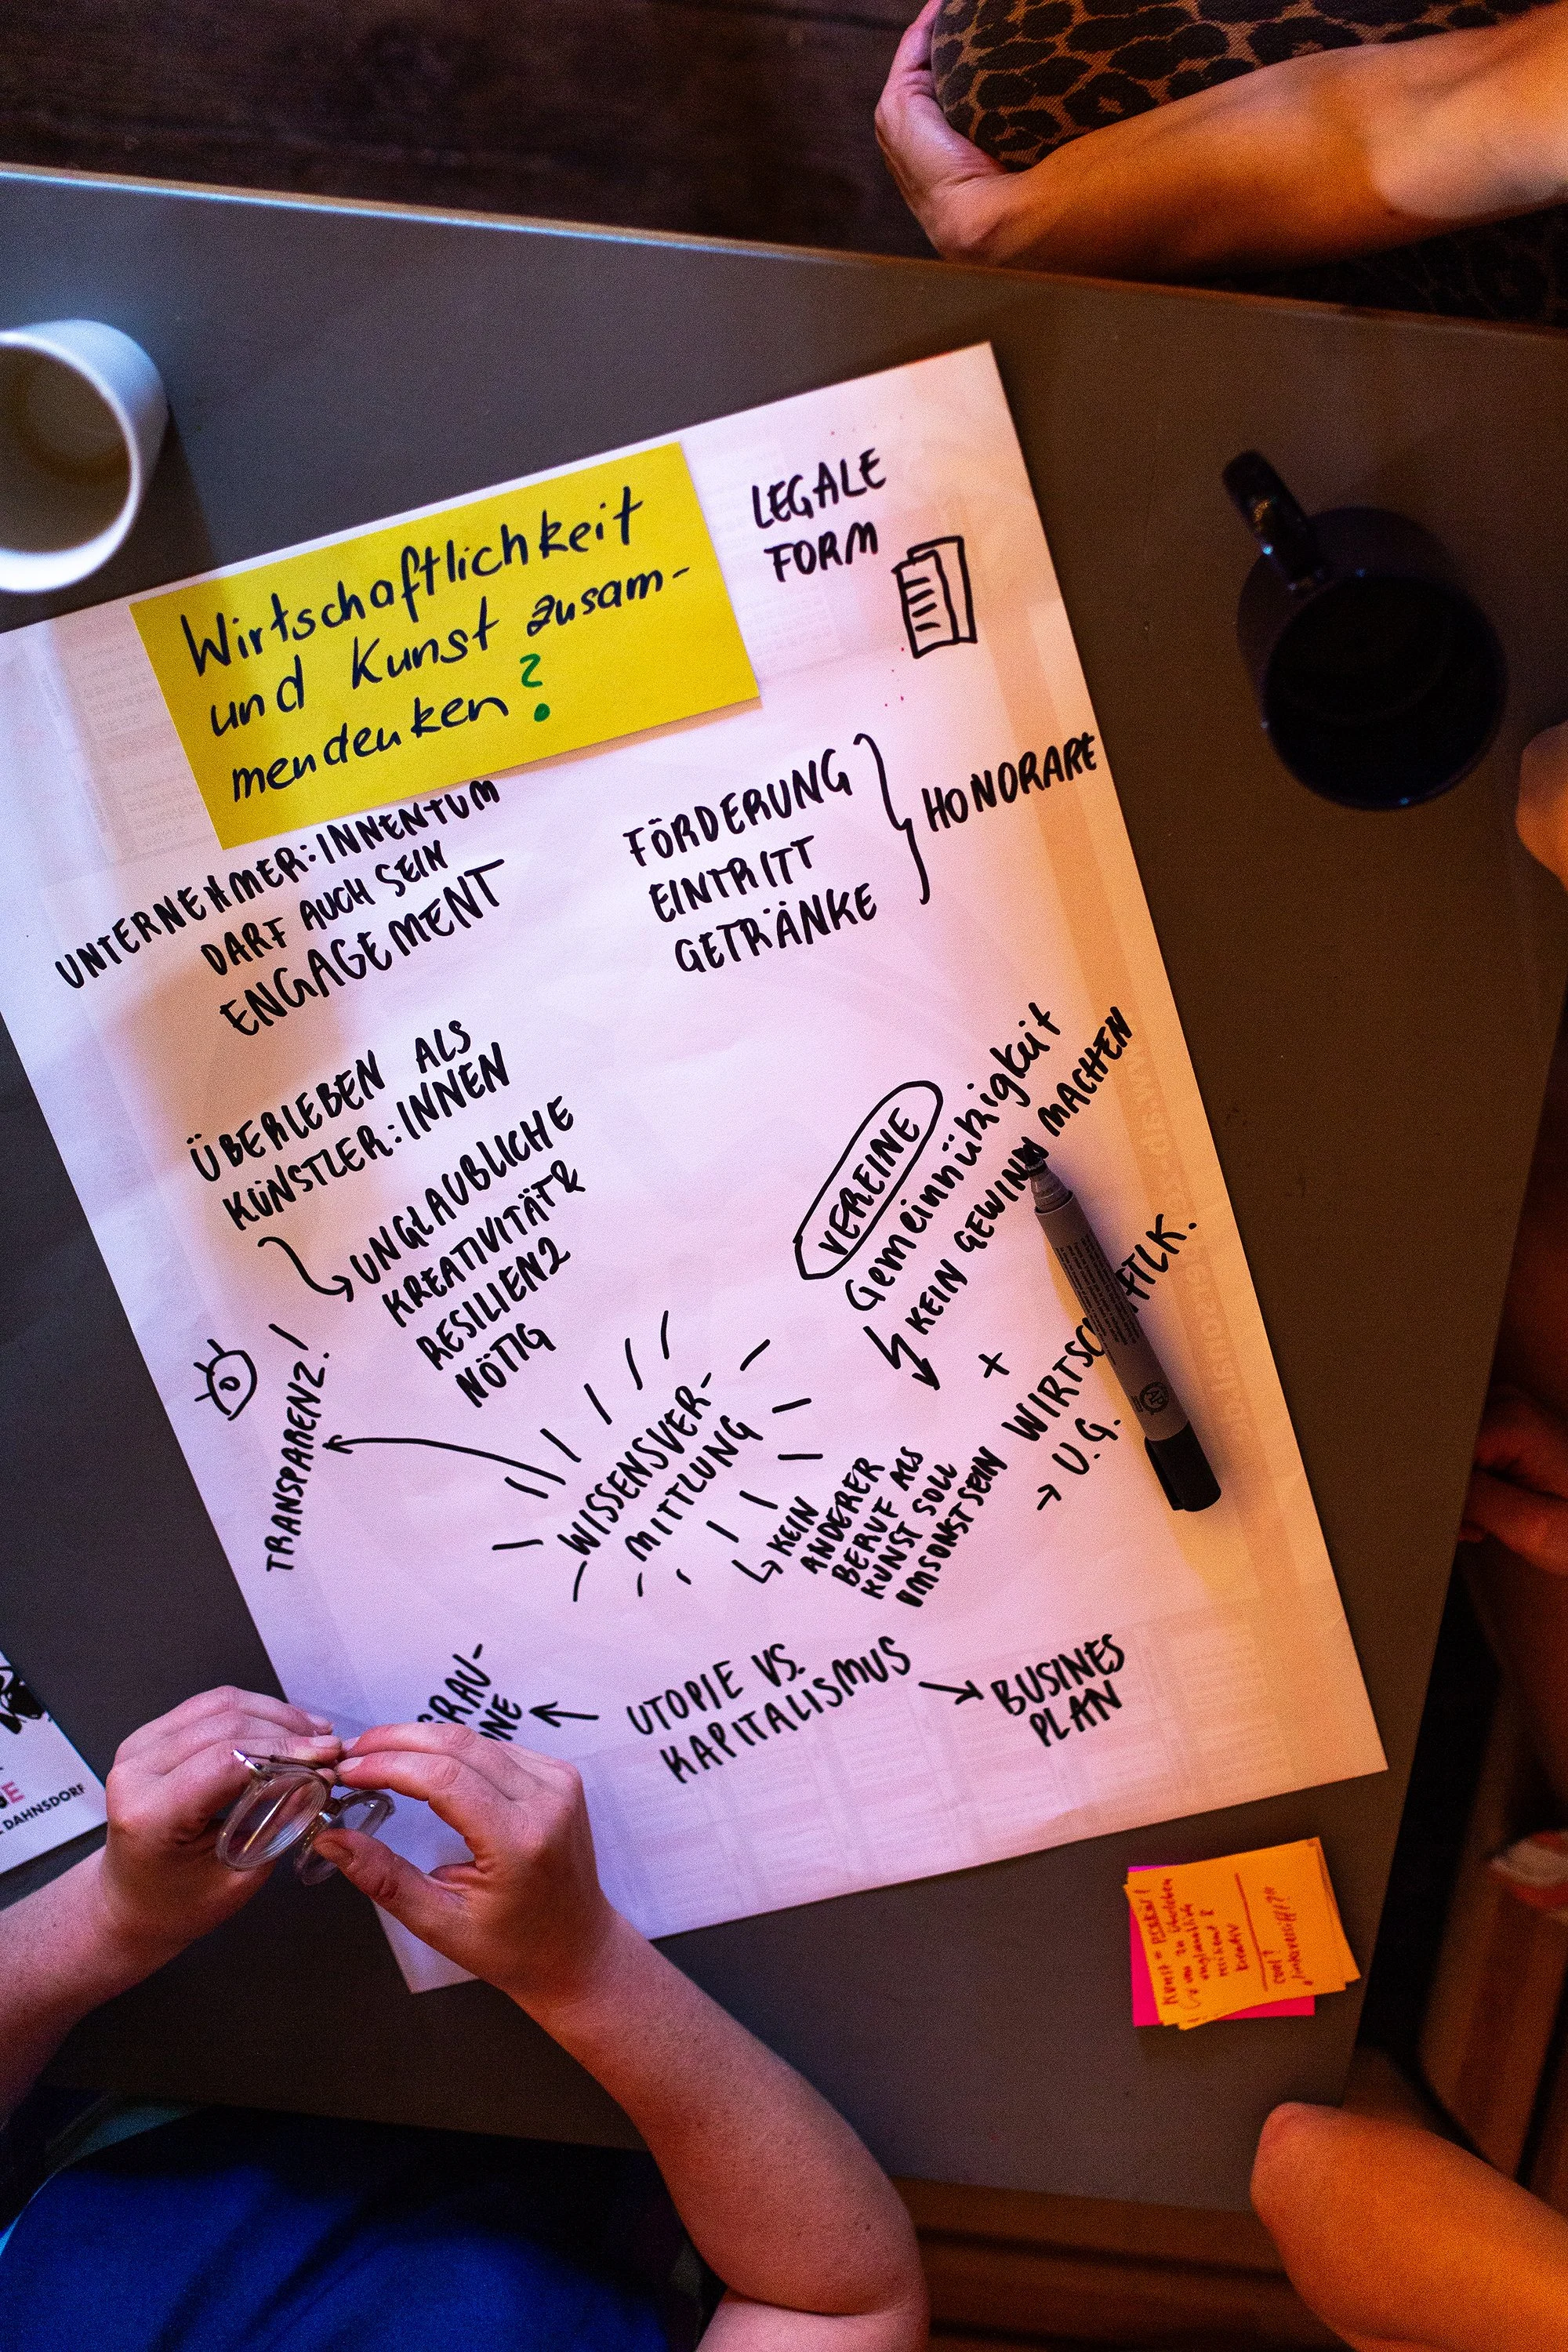 Wirtschaftlichkeit
und Kunst zusam-
mendenken?
LEGALE
FORM
UNTERNEHMER:INNENTUM
DARF AUCH SEIN
ENGAGEMENT
FÖRDERUNG
EINTRITT
GETRÄNKE
HONORARE
ÜBERLEBEN ALS
KÜNSTLER:INNEN
UNGLAUBLICHE
KREATIVITÄT &
RESILIENZ
NÖTIG
VEREINE
Gemeinnützigkeit
KEIN GEWINN MACHEN
+
WIRTSCH FTLK.
→ U.G.
TRANSPARENZ!
WISSENSVER-
MITTLUNG
KEIN
ANDERER
BERUF ALS
KUNST SOLL
UMSONST SEIN
GRAU-
ONE
UTOPIE VS.
KAPITALISMUS
BUSINES
PLAN
E
DAHNSDORF
Kunst =